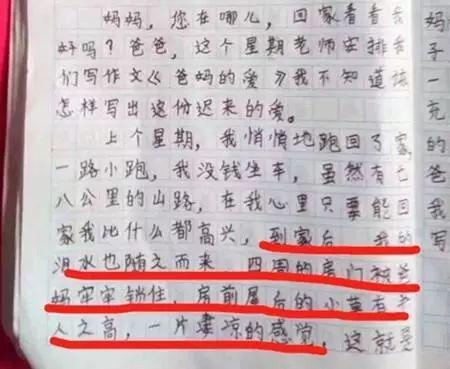 妈妈，您在哪儿，回家看看我
好吗？爸爸，这个星期老师安排我
们写作文《爸妈的爱》我不知道该
怎样写出这份迟来的爱。
上个星期，我悄悄地跑回了家，
一路小跑，我没钱坐车，虽然有七
八公里的山路，在我心里只要能回
家我比什么都高兴，到家后，我的
泪水也随之而来 四周的房门被爸
妈牢牢锁住，房前屋后的小草有
人之高，一片凄凉的感觉，这就是
妈
子
一
充
的
爸
我
写